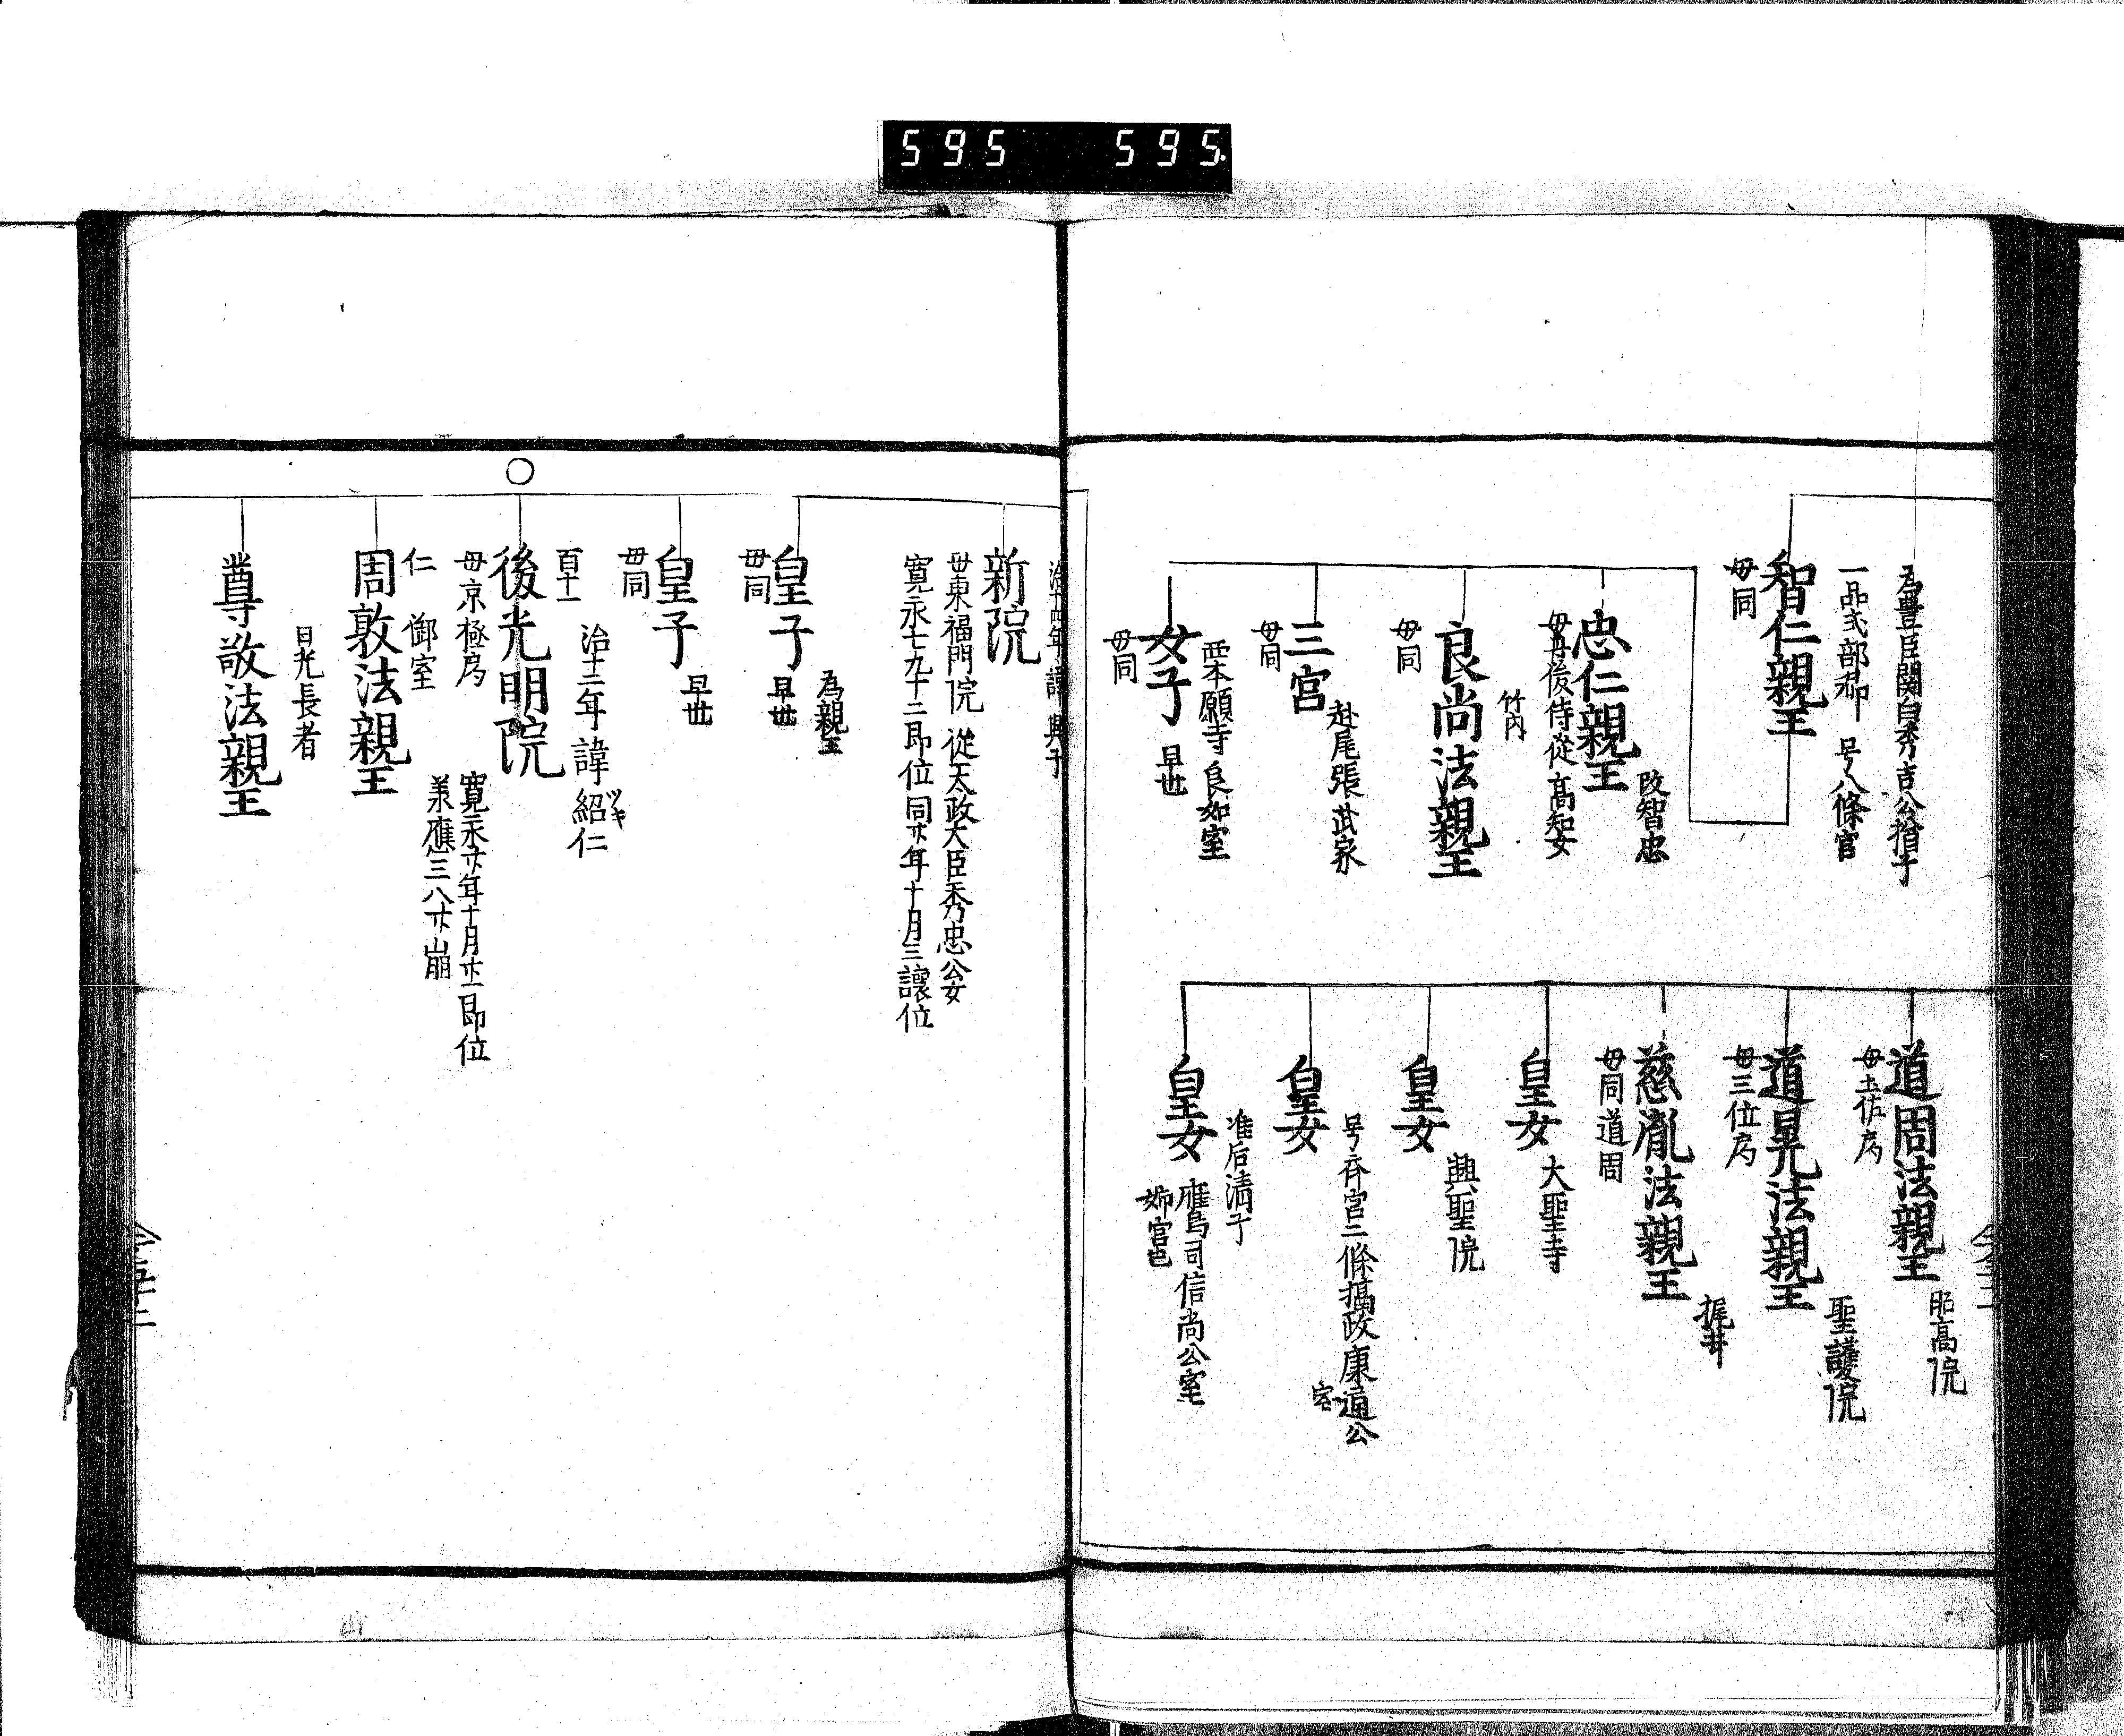 595 595.
為豊臣関白秀吉公猶子
一品式部卿 号八條宮
智仁親王
母同
改智忠
忠仁親王
母丹後侍従高知女
竹内
良尚法親王
母同
赴尾張武家
三宮
母同
西本願寺良如室
女子 早世
母同
道周法親王 照高院
母土佐局
道晃法親王 聖護院
母三位局
慈胤法親王 梶井
母同道周
皇女 大聖寺
皇女 興聖院
号斉宮二條摂政康道公
室
皇女
准后清子
皇女 鷹司信尚公室
姉宮也
治十四年 諱 興子
新院
母東福門院 従一太政大臣秀忠公女
寛永七九十二即位同廿年十月三譲位
為親王
皇子 早世
母同
皇子 早世
母同
治十二年諱紹仁
ツキ
百十一
後光明院
母京極局
寛永廿年十月廿一即位
承應三八廿崩
仁 御室
周敦法親王
日光長者
尊敬法親王